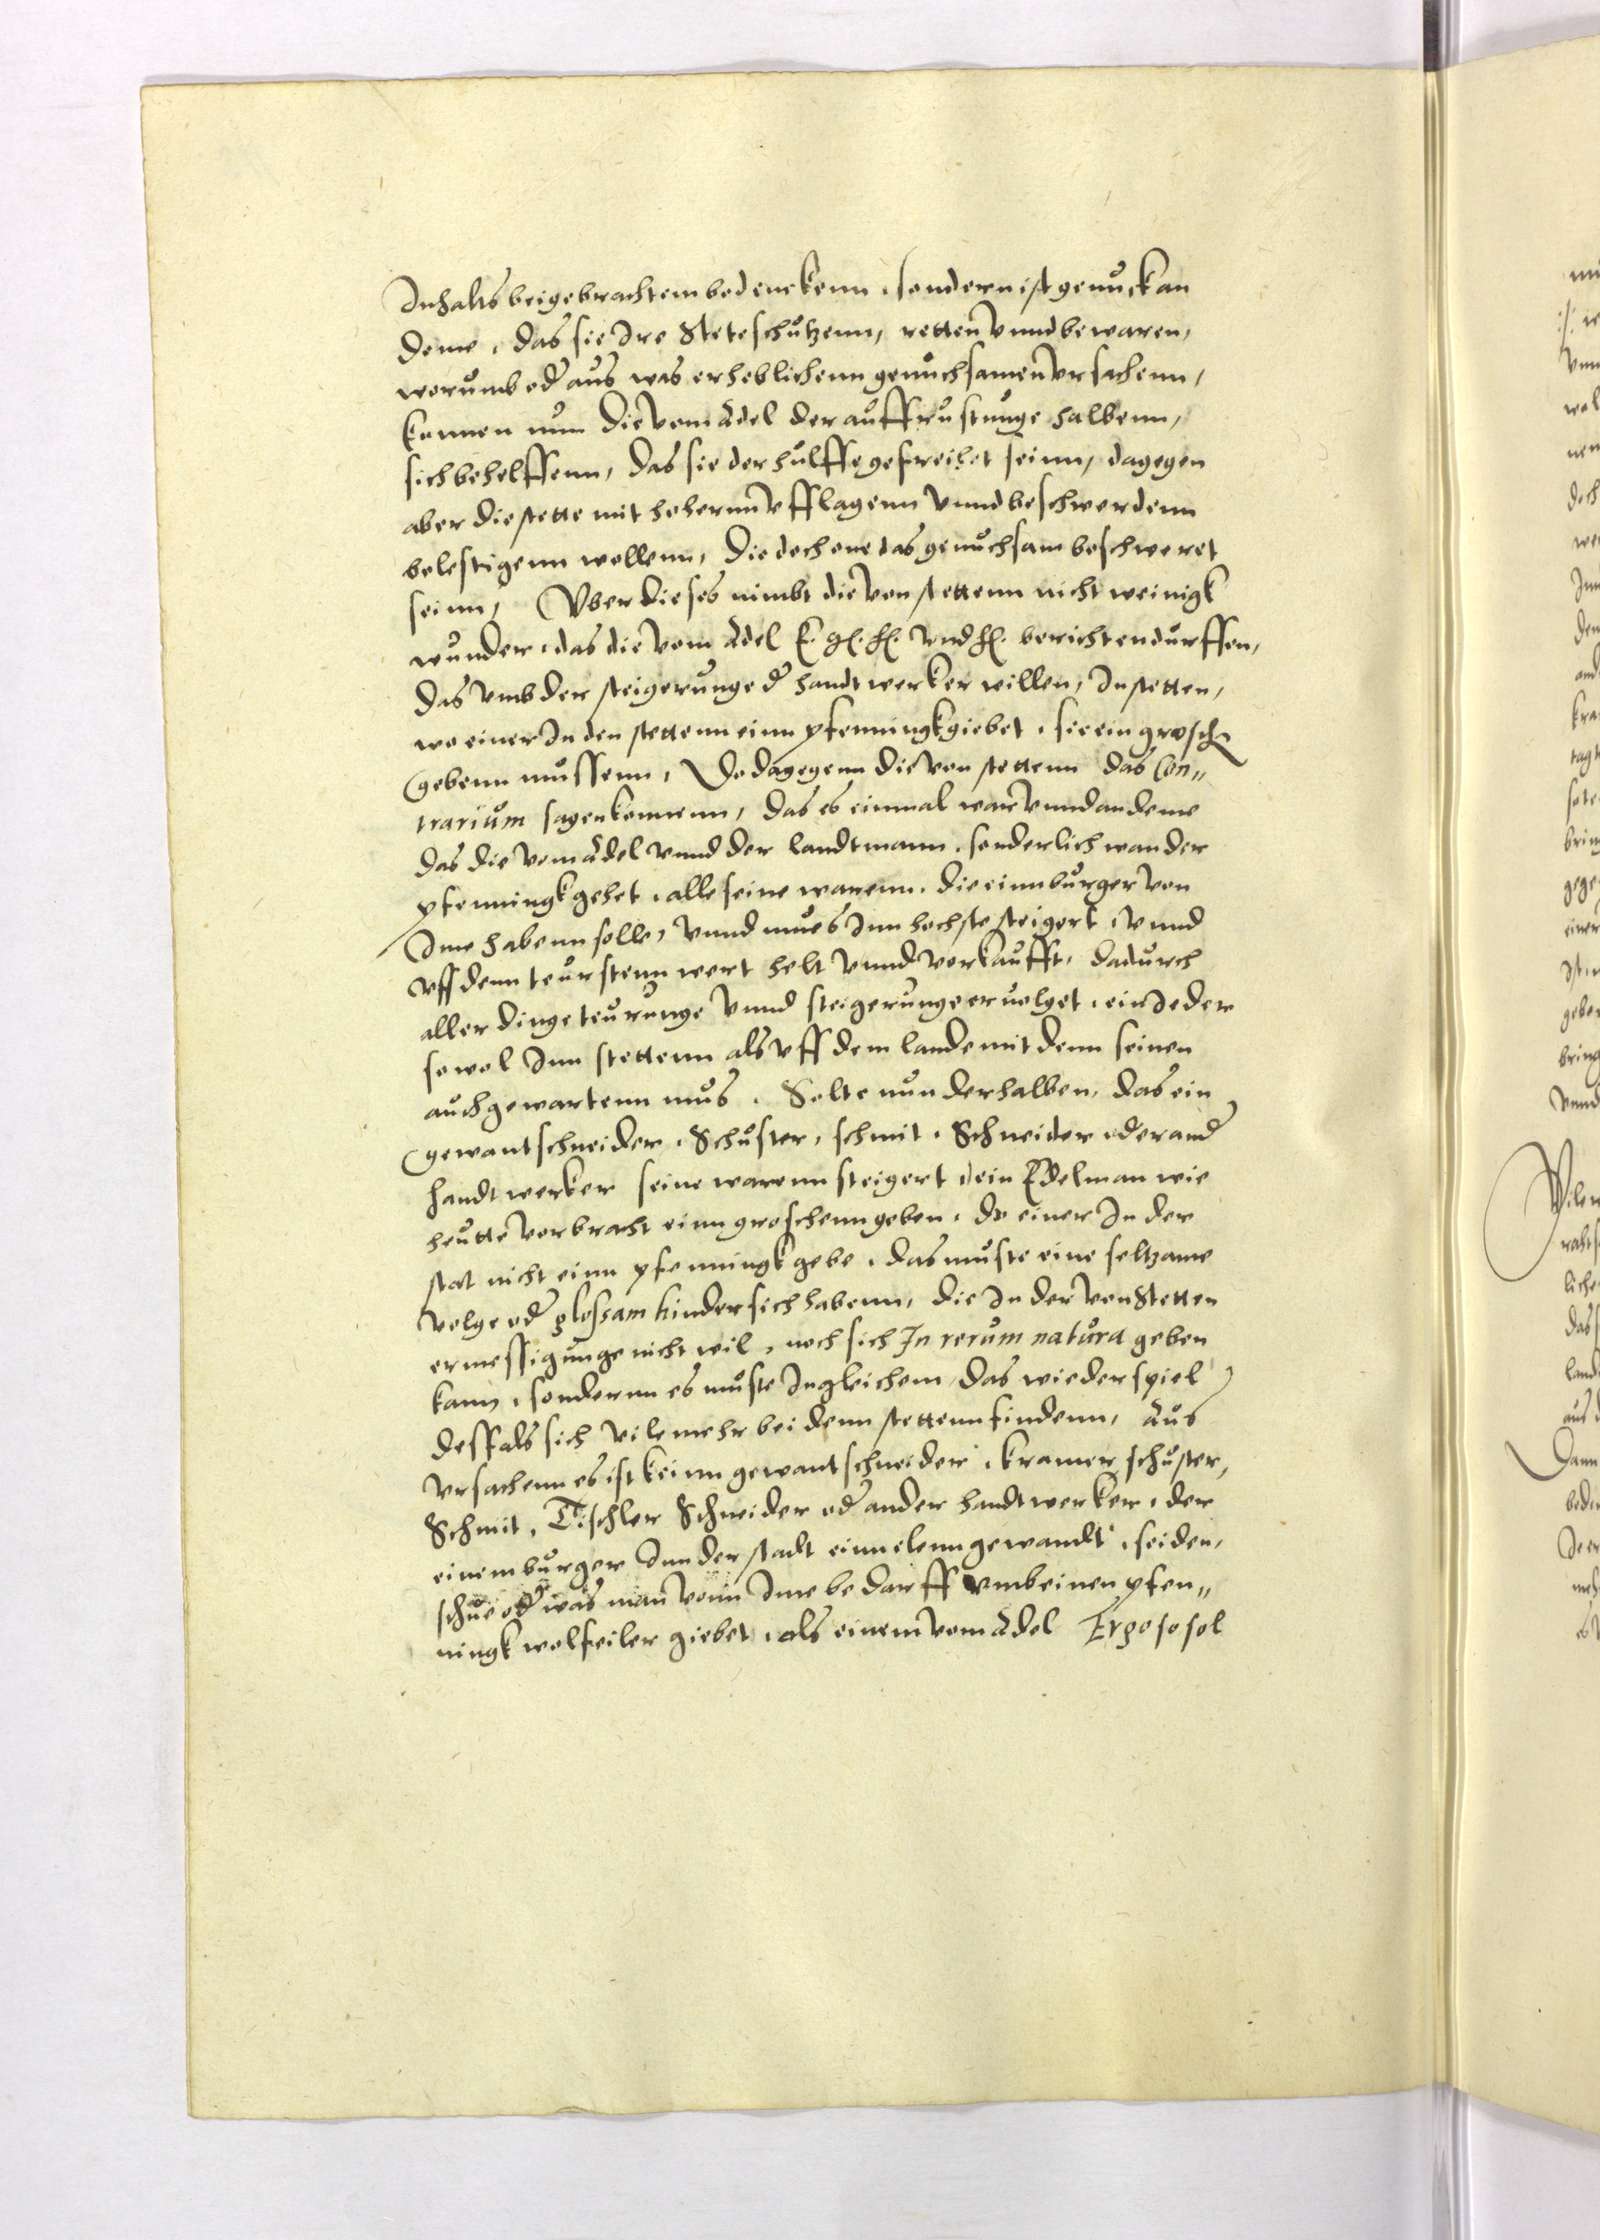 Inhalts beigebrachtem bedenckenn, sondern ist genuck an
deme, das sie Ire Stete schützenn, retten vnnd bewaren,
worumb oder aus was erheblichenn genuchsamen vrsachenn,
konnen nun die vom Adel der auffrustunge halbenn,
sich behelffenn, das sie der hulffe gefreihet seinn, dagegen
aber die stette mit hohernn vfflagenn vnnd beschwerdenn
belestigenn wollenn, die doch one das genuchsam beschweret
seinn, Vber dieses nimbt die von stettenn nicht weinigk
wunder, das die vom Adel E. g. f. vnd f. berichten durffen,
das vmb der steigerunge der handtwerker willen, In stetten,
wo einer In den stettenn einn pfenningk giebet, sie ein grosch
gebenn mussenn, Do dagegenn die von stettenn das Con„
trarium sagen konnenn, das es einmal war vnnd an deme
das die vom Adel vnnd der landtmann, sonderlich wan der
pfenningk gehet, alle seine warenn, die einn burger von
Ime habenn solle, vnnd mues Inn hochste steigert, vnnd
vff denn teurstenn wert helt vnnd verkaufft, dadurch
aller dinge teurunge vnnd steigerunge eruolget, ein Ieder
sowol Inn stettenn als vff dem lande mit denn seinen
auch gewartenn mus. Solte nun derhalben, das ein
gewantschneider, Schuster, schmit, Schneider oder ander
handtwerker seine warenn steigert, ein Edelman wie
heutte vorbracht einn groschenn geben, do einer In der
stat nicht einn pfenningk gebe, das muste eine seltzame
volge oder glossam hinder sich habenn, die In der von Stetten
ermessigunge nicht wil, noch sich In rerum natura geben
kann, sondernn es muste Ingleichem, das wiederspiel
desfals sich vilemehr bei denn stettenn findenn, Aus
vrsachenn es ist keinn gewantschneider, kramer, schuster,
Schmit, Tischler Schneider oder ander handtwerker, der
einem burger Inn der stadt einn elenn gewandt, seiden,
schue oder was man vonn Ime bedarff vmb einen pfen„
ningk wolfeiler giebet, als einem vom Adel Ergo so sol